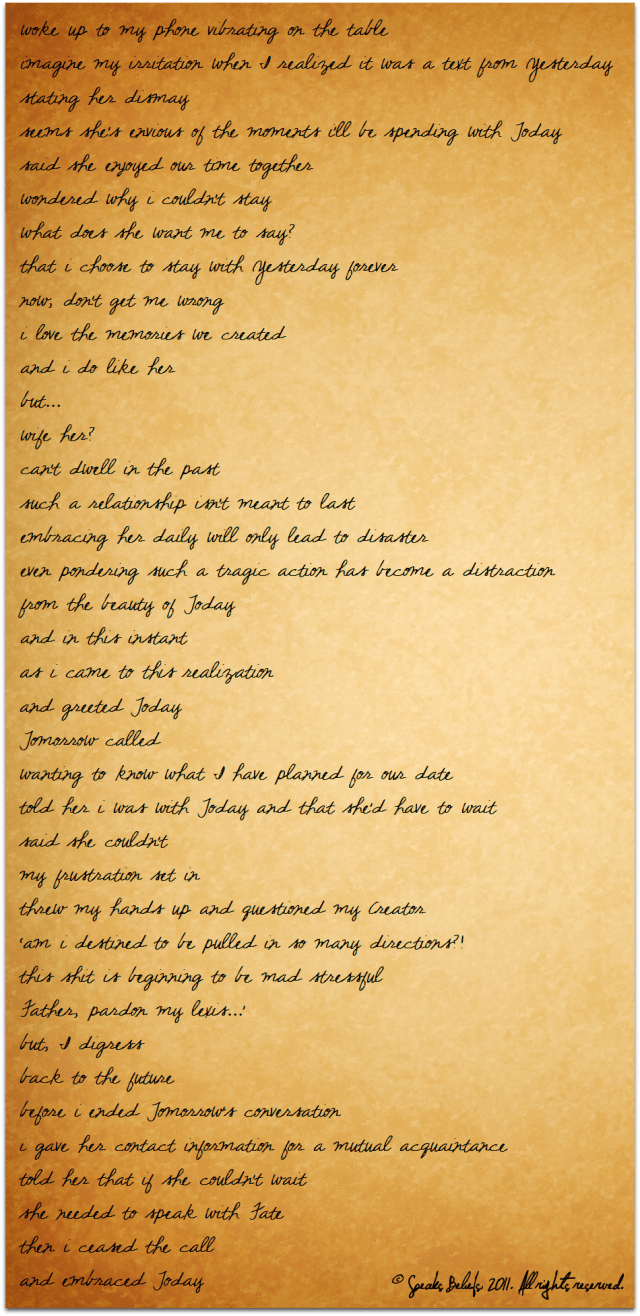 woke up to my phone vibrating on the table
imagine my irritation when I realized it was a text from Yesterday
stating her dismay
seems she's envious of the moments i'll be spending with Today
said she enjoyed our time together
wondered why i couldn't stay
what does she want me to say?
that i choose to stay with Yesterday forever
now, don't get me wrong
i love the memories we created
and i do like her
but...
wife her?
can't dwell in the past
such a relationship isn't meant to last
embracing her daily will only lead to disaster
even pondering such a tragic action has become a distraction
from the beauty of Today
and in this instant
as i came to this realization
and greeted Today
Tomorrow called
wanting to know what I have planned for our date
told her i was with Today and that she'd have to wait
said she couldn't
my frustration set in
threw my hands up and questioned my Creator
'am i destined to be pulled in so many directions?!
this shit is beginning to be mad stressful
Father, pardon my lexis...'
but, I digress
back to the future
before i ended Tomorrow's conversation
i gave her contact information for a mutual acquaintance
told her that if she couldn't wait
she needed to speak with Fate
then i ceased the call
and embraced Today
© Speaks Beliefs. 2011. All rights reserved.